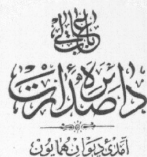 باب عالی
دائرهٔ صدارت
آمدی دیوان همایون